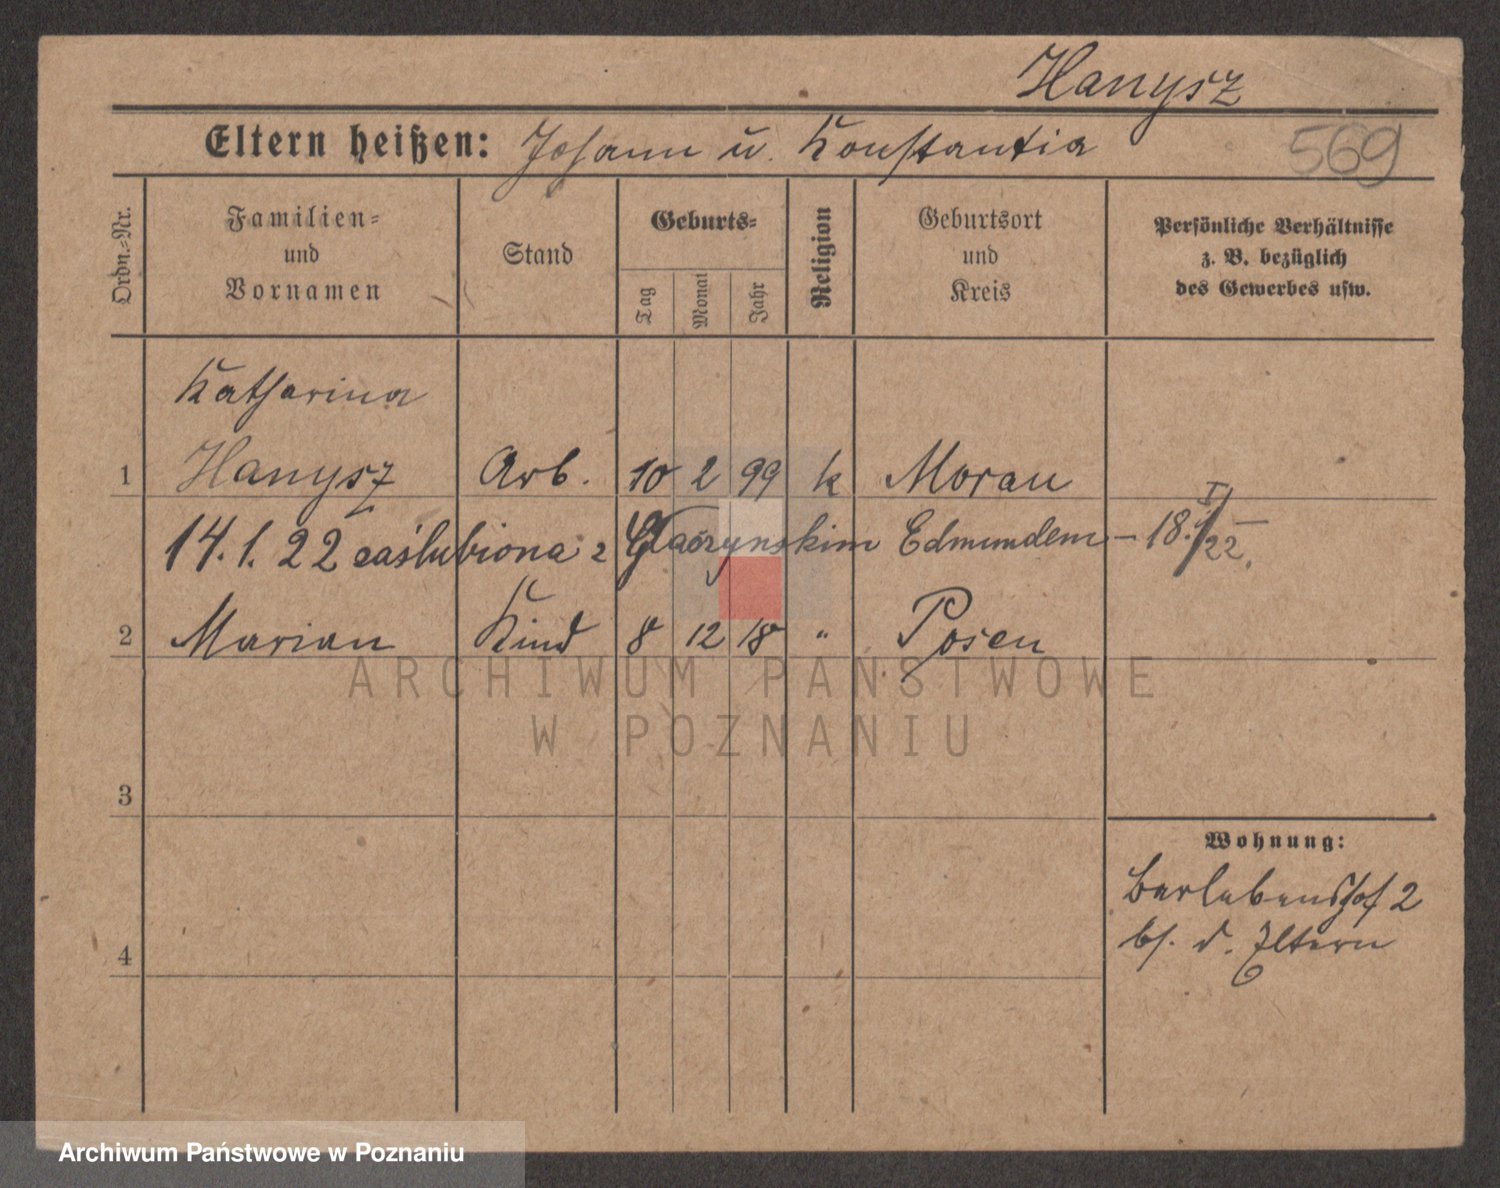 Hanysz
Eltern heißen: Johann u. Konstantia
569
Ordn.-Nr.
Familien-
und
Vornamen
Stand
Geburts-
Tag
Monat
Jahr
Religion
Geburtsort
und
Kreis
Persönliche Verhältnisse
z. B. bezüglich
des Gewerbes usw.
Katharina
1 Hanysz Arb. 10 2 99 k Morau
14.1.22 zaślubiona z Edmundem – 18.I/22.
2 Marian Kind 8 12 18 " Posen
ARCHIWUM PAŃSTWOWE
W POZNANIU
3
Wohnung:
Berlebenshof 2
4 bs. d. Eltern
Archiwum Państwowe w Poznaniu